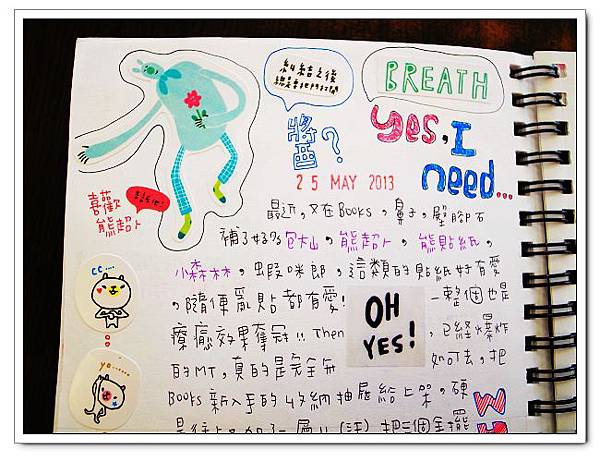 糾結之後
BREATH
醬?
yes, I
need...
25 MAY 2013
喜歡
熊超人
最近,又在Books,鼻子,壁腳石
補了好多包大山,熊超人,熊貼紙,
小森林,蝦咪郎,這類的貼紙好有愛
。隨便亂貼都有愛! 一整個也是
療癒效果奪冠!! Then OH YES! ,已經爆炸
的MT,真的是完全無 如可去,把
Books 新入手的收納抽屜給上架,硬
是往上又加了一層!! (汗) 把三個全擺
cc...
yo......
WH